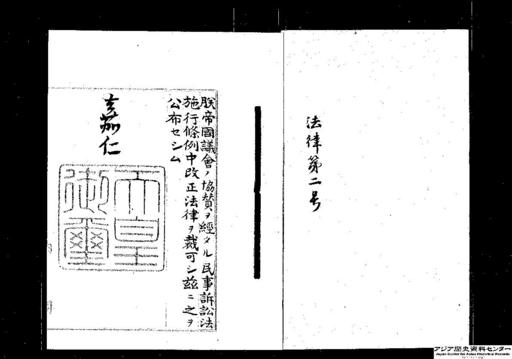 法律第二号
朕帝國議會ノ協賛ヲ經タル民事訴訟法
施行條例中改正法律ヲ裁可シ茲ニ之ヲ
公布セシム
嘉仁
天皇
御璽
アジア歴史資料センター
Japan Center for Asian Historical Records